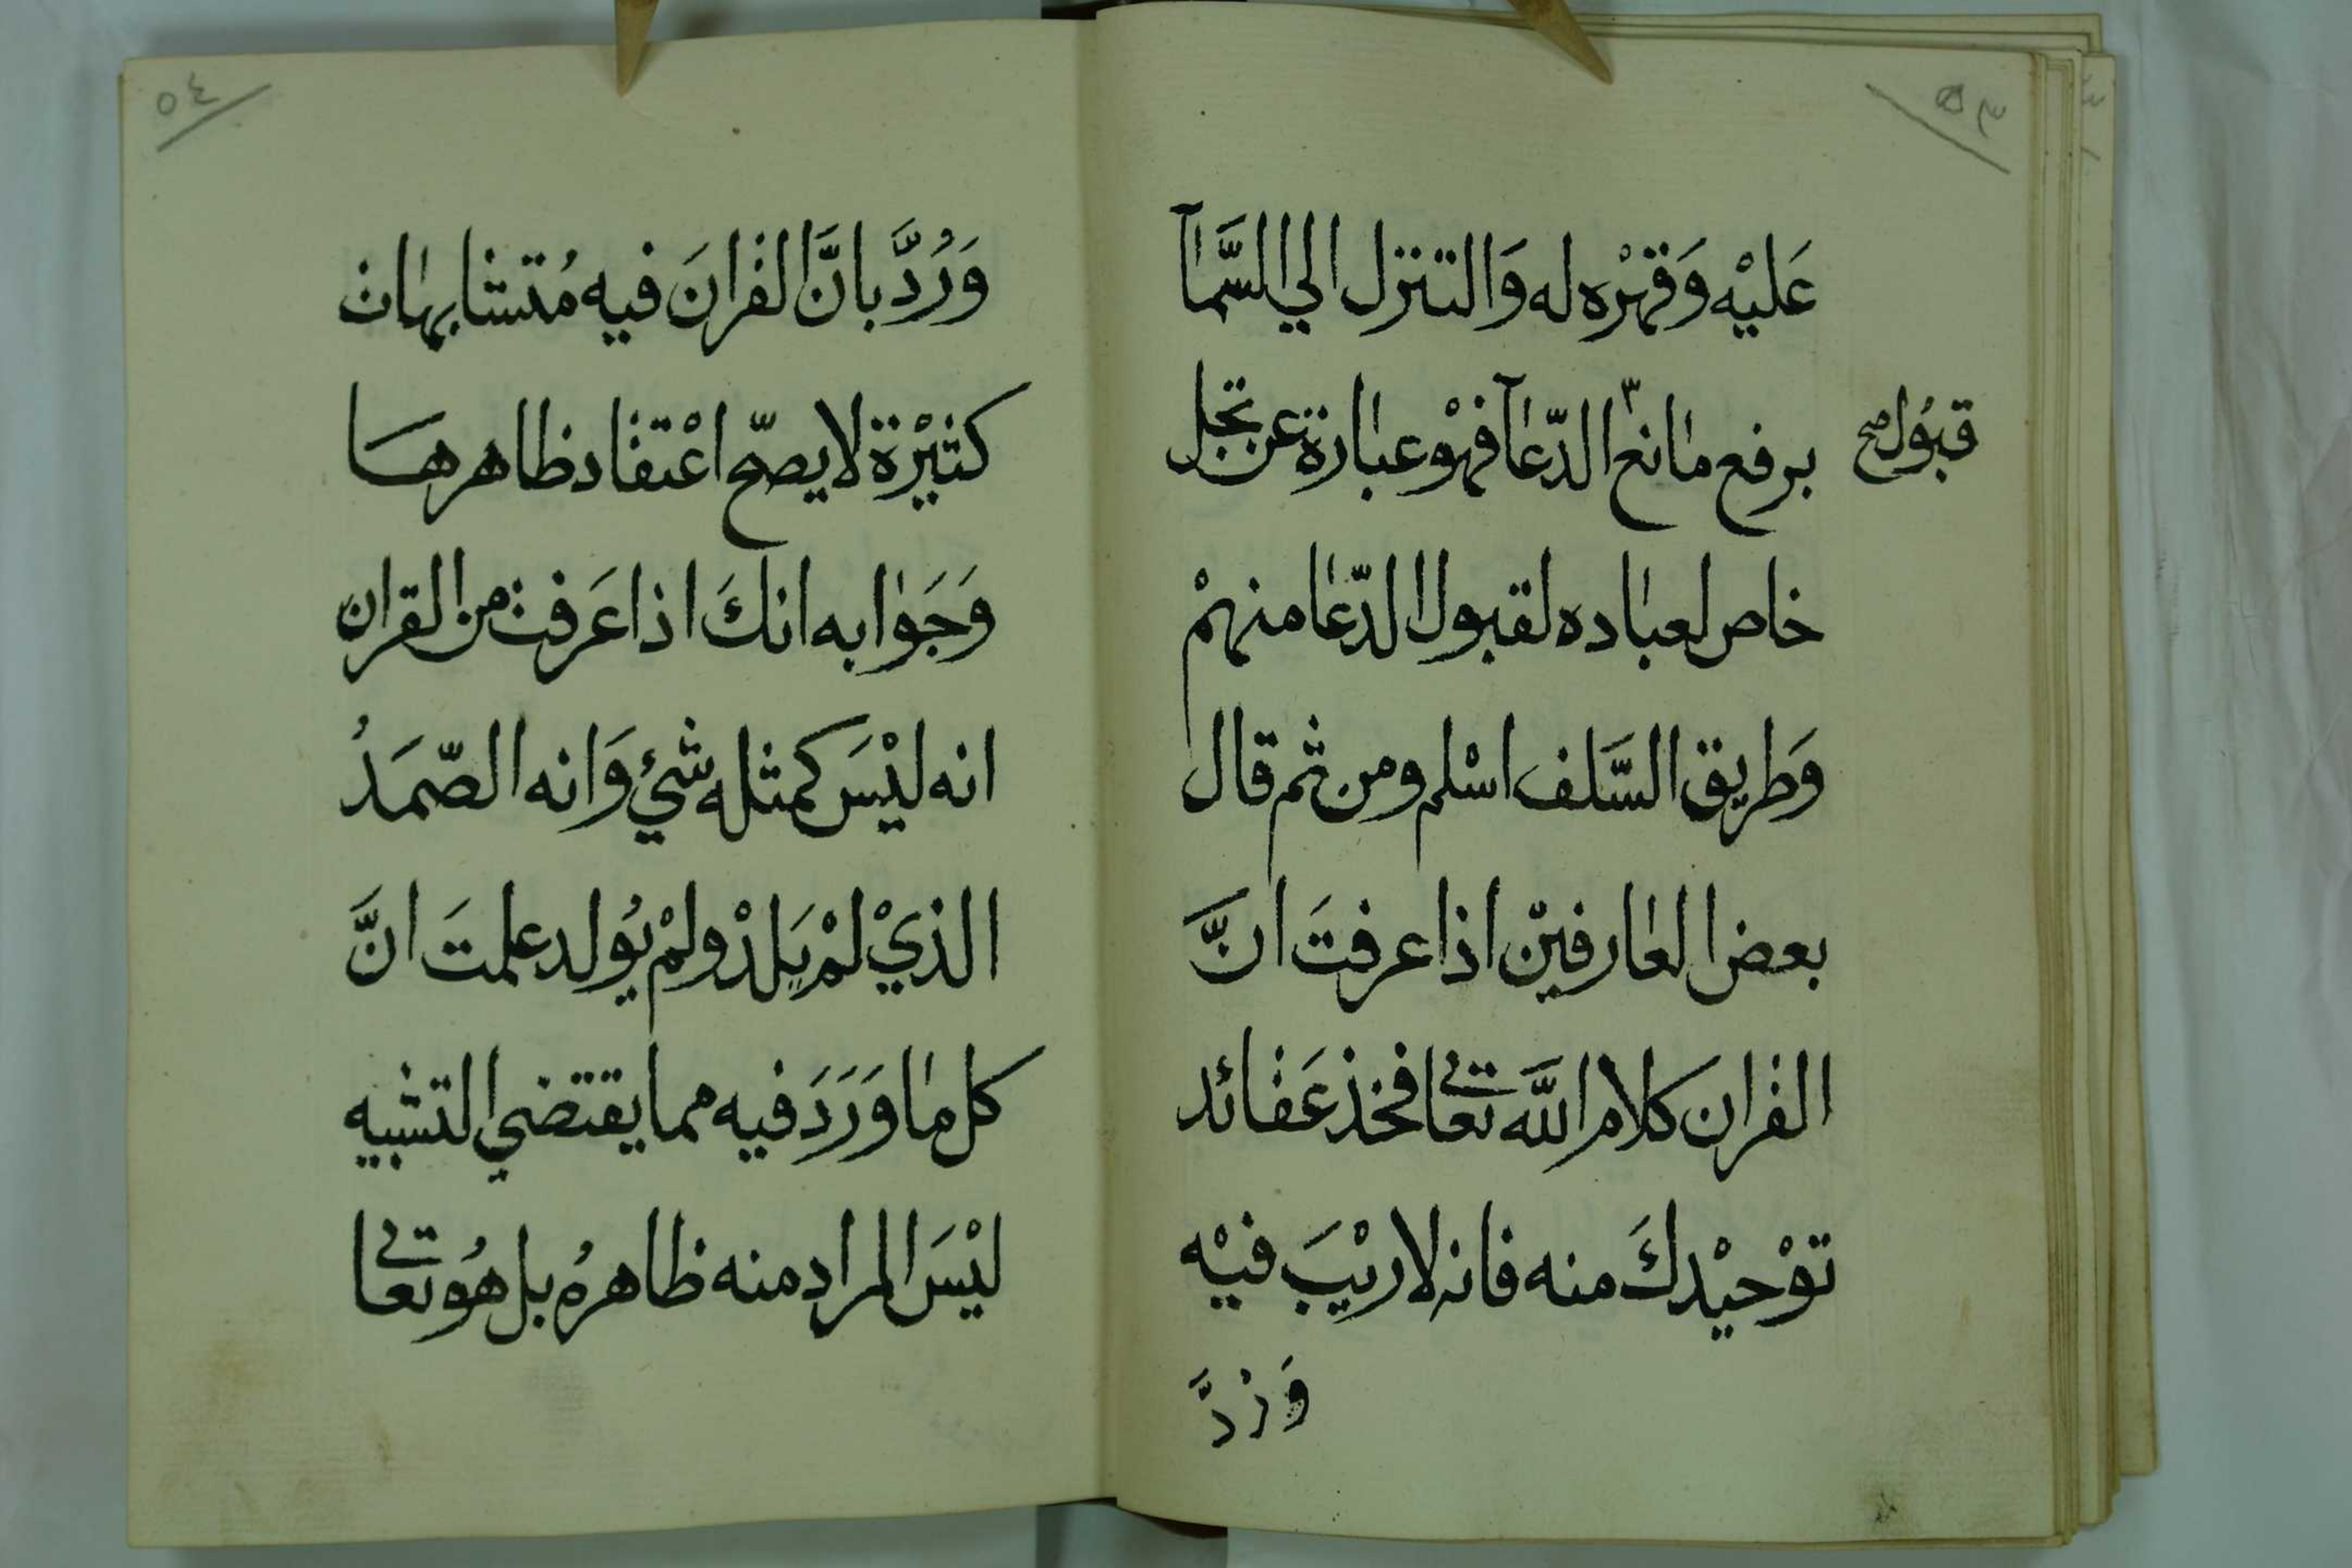 ٥٣
عَليْه وَقهْره له وَالتنزل الي السَّمآ
برفع مانع الدّعآ فهْو عبارة عن تجل
قبُول صح
خاص لعباده لقبول الدّعا منهمْ
وَطريق السَّلف اسْلم ومن ثم قال
بعض العارفيْن اذا عرفتَ انَّ
القران كلام اللَّه تعالى فخذ عَقائد
توْحيْدكَ منه فانه لا ريْبَ فيْه
وَرُدَّ
٥٤
وَرُدَّ بانَّ القرانَ فيه مُتشابهات
كثيْرة لا يصحّ اعْتقاد ظاهرها
وَجَوابه انكَ اذا عَرفت من القران
انه ليْسَ كمثله شيْ وَانه الصّمَدُ
الذيْ لمْ يَلدْ ولمْ يُولد علمتَ انَّ
كل ما وَرَدَ فيه مما يقتضي التشبيه
ليْسَ المراد منه ظاهرهُ بل هُو تعالى